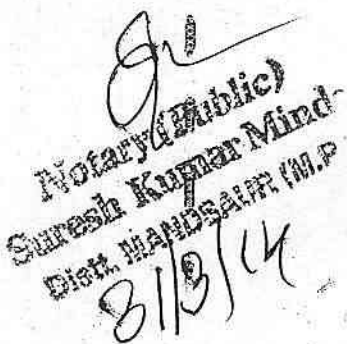 Notary (Public)
Suresh Kumar Mind-
Distt. MANDSAUR (M.P
31/3/14